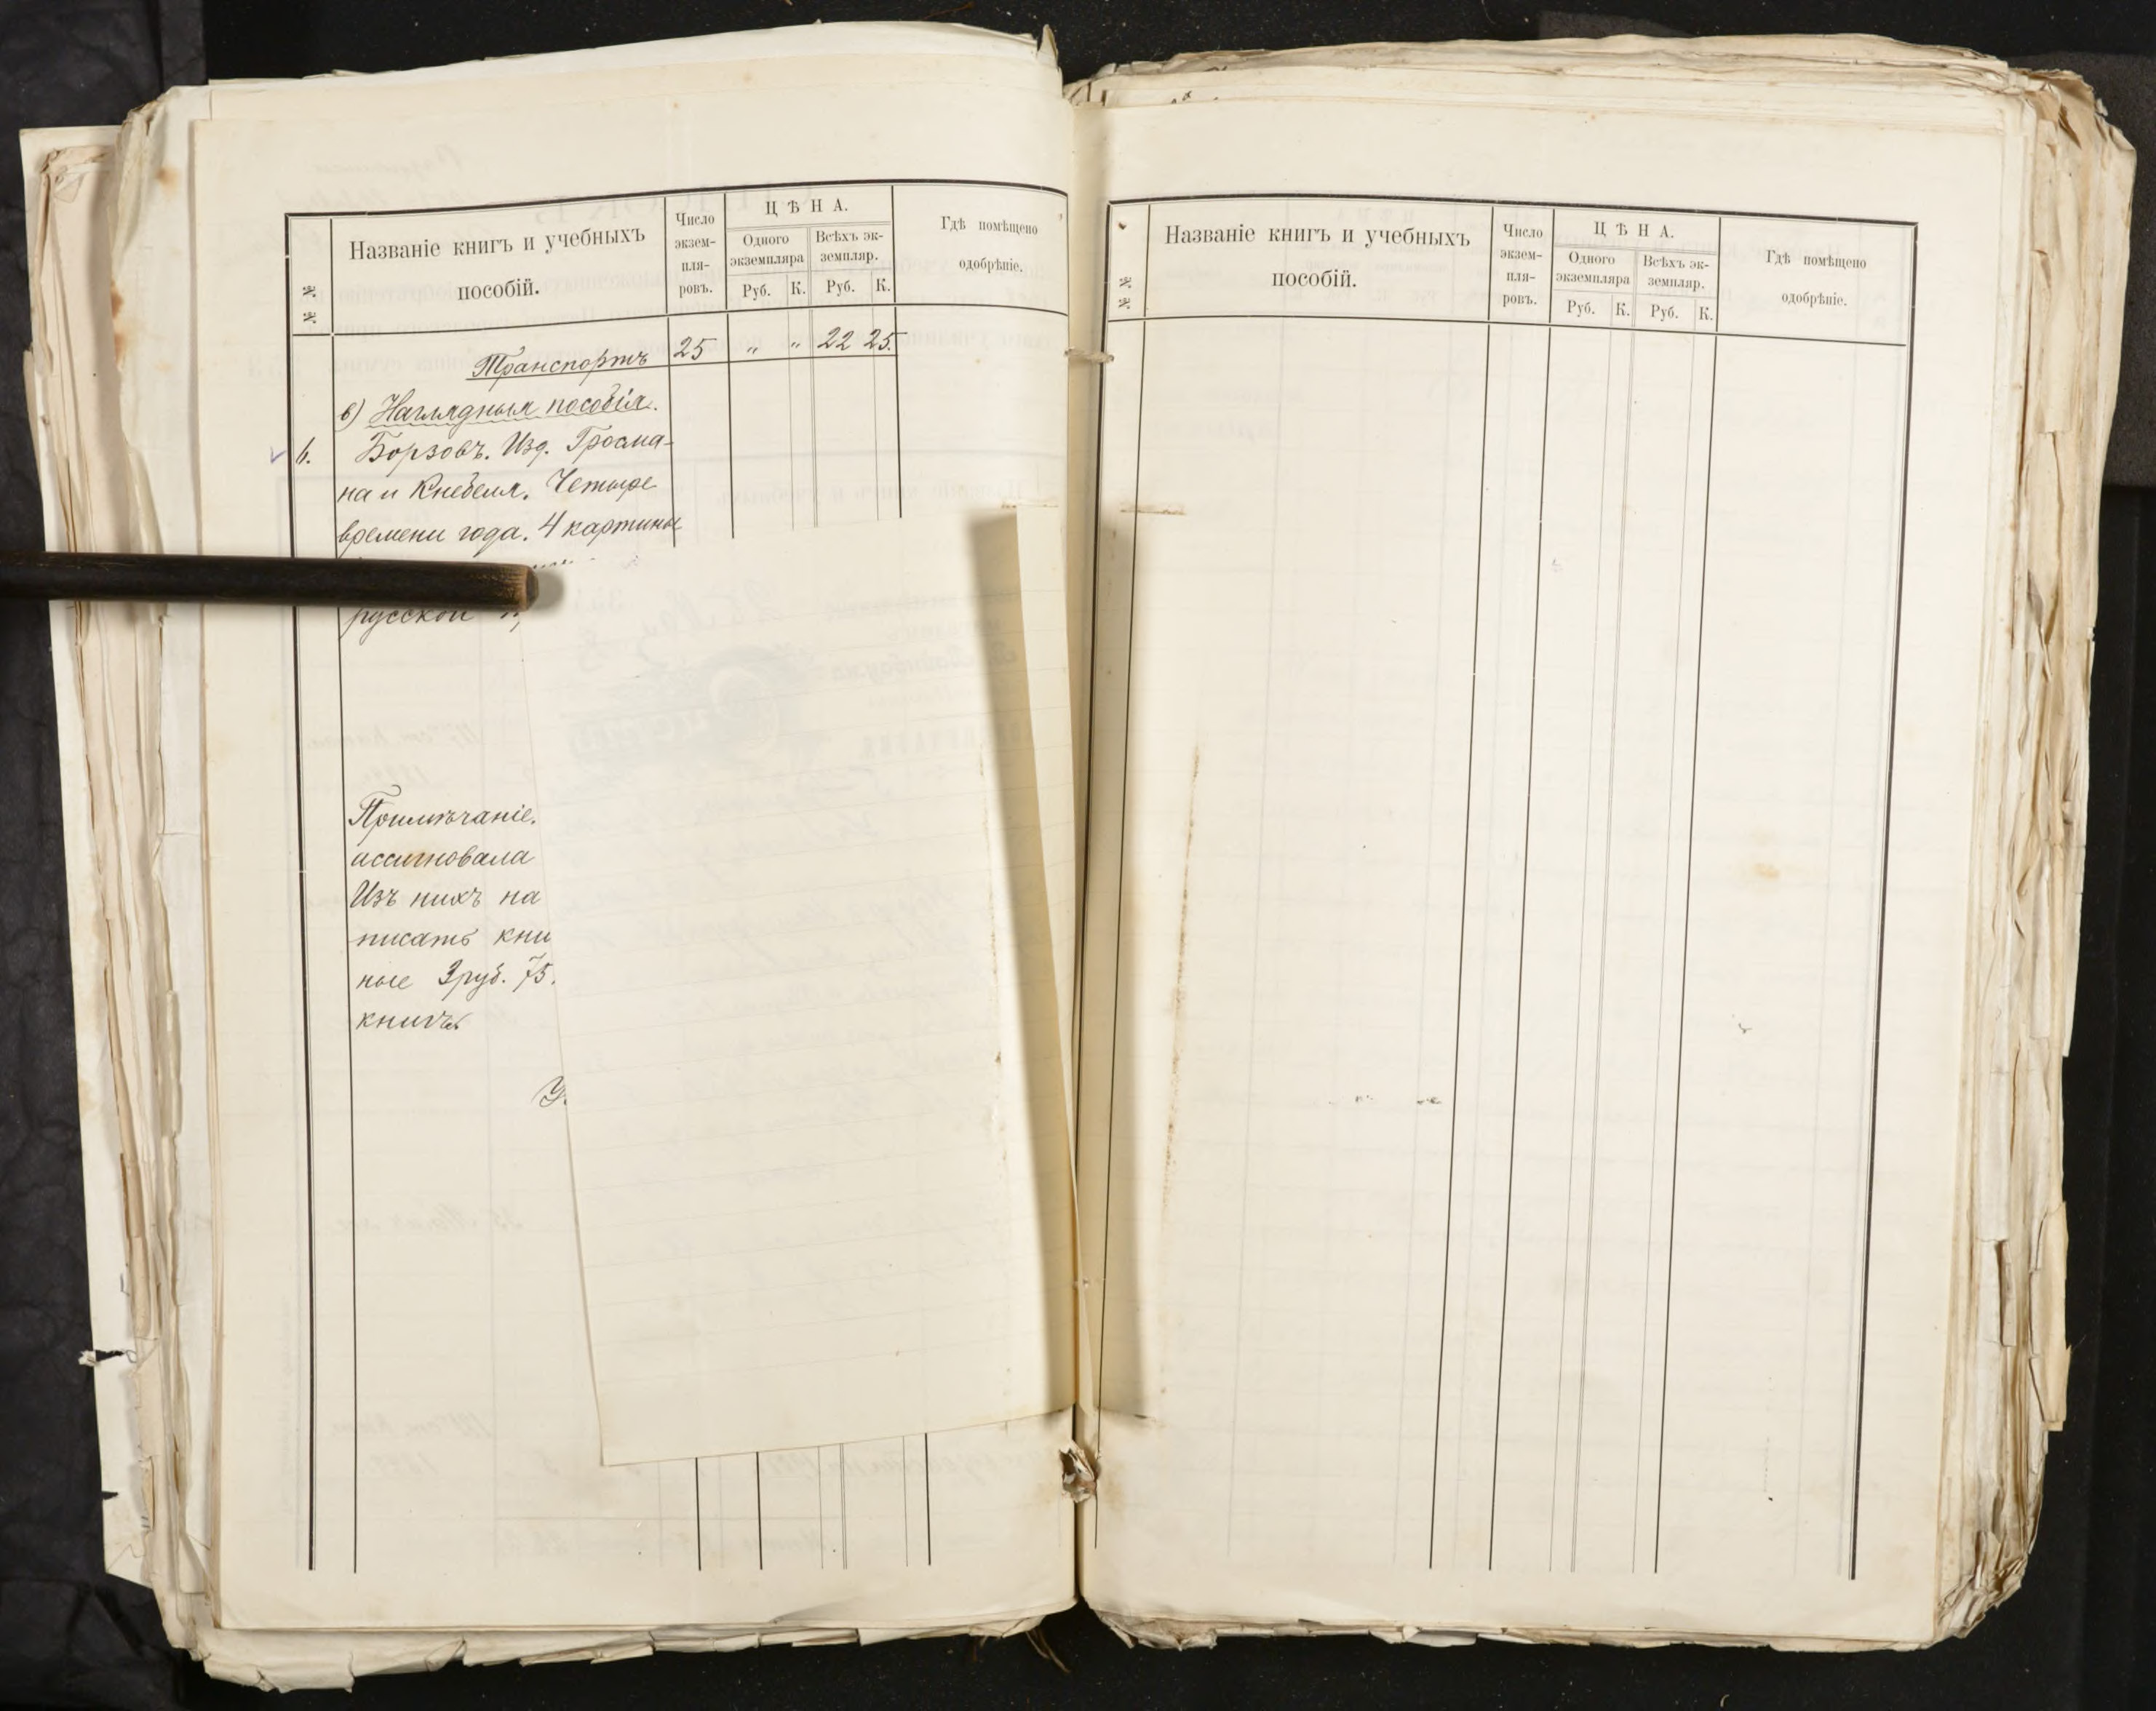 № №
Названіе книгъ и учебныхъ
пособій.
Число
экзем-
пля-
ровъ.
ЦѢНА.
Одного
экземпляра
Всѣхъ эк-
земпляр.
Руб. К. Руб. К.
Гдѣ помѣщено
одобрѣніе.
Транспортъ 25 " " 22 25.
в) Наглядныя пособія.
6. Борзовъ. Изд. Гросма-
на и Кнебеля. Четыре
времени года. 4 картины
русской
Примѣчаніе.
ассигновала
Изъ нихъ на
писать кни
ные 3 руб. 75.
книгъ
У.
№ №
Названіе книгъ и учебныхъ
пособій.
Число
экзем-
пля-
ровъ.
ЦѢНА.
Одного
экземпляра
Всѣхъ эк-
земпляр.
Руб. К. Руб. К.
Гдѣ помѣщено
одобрѣніе.